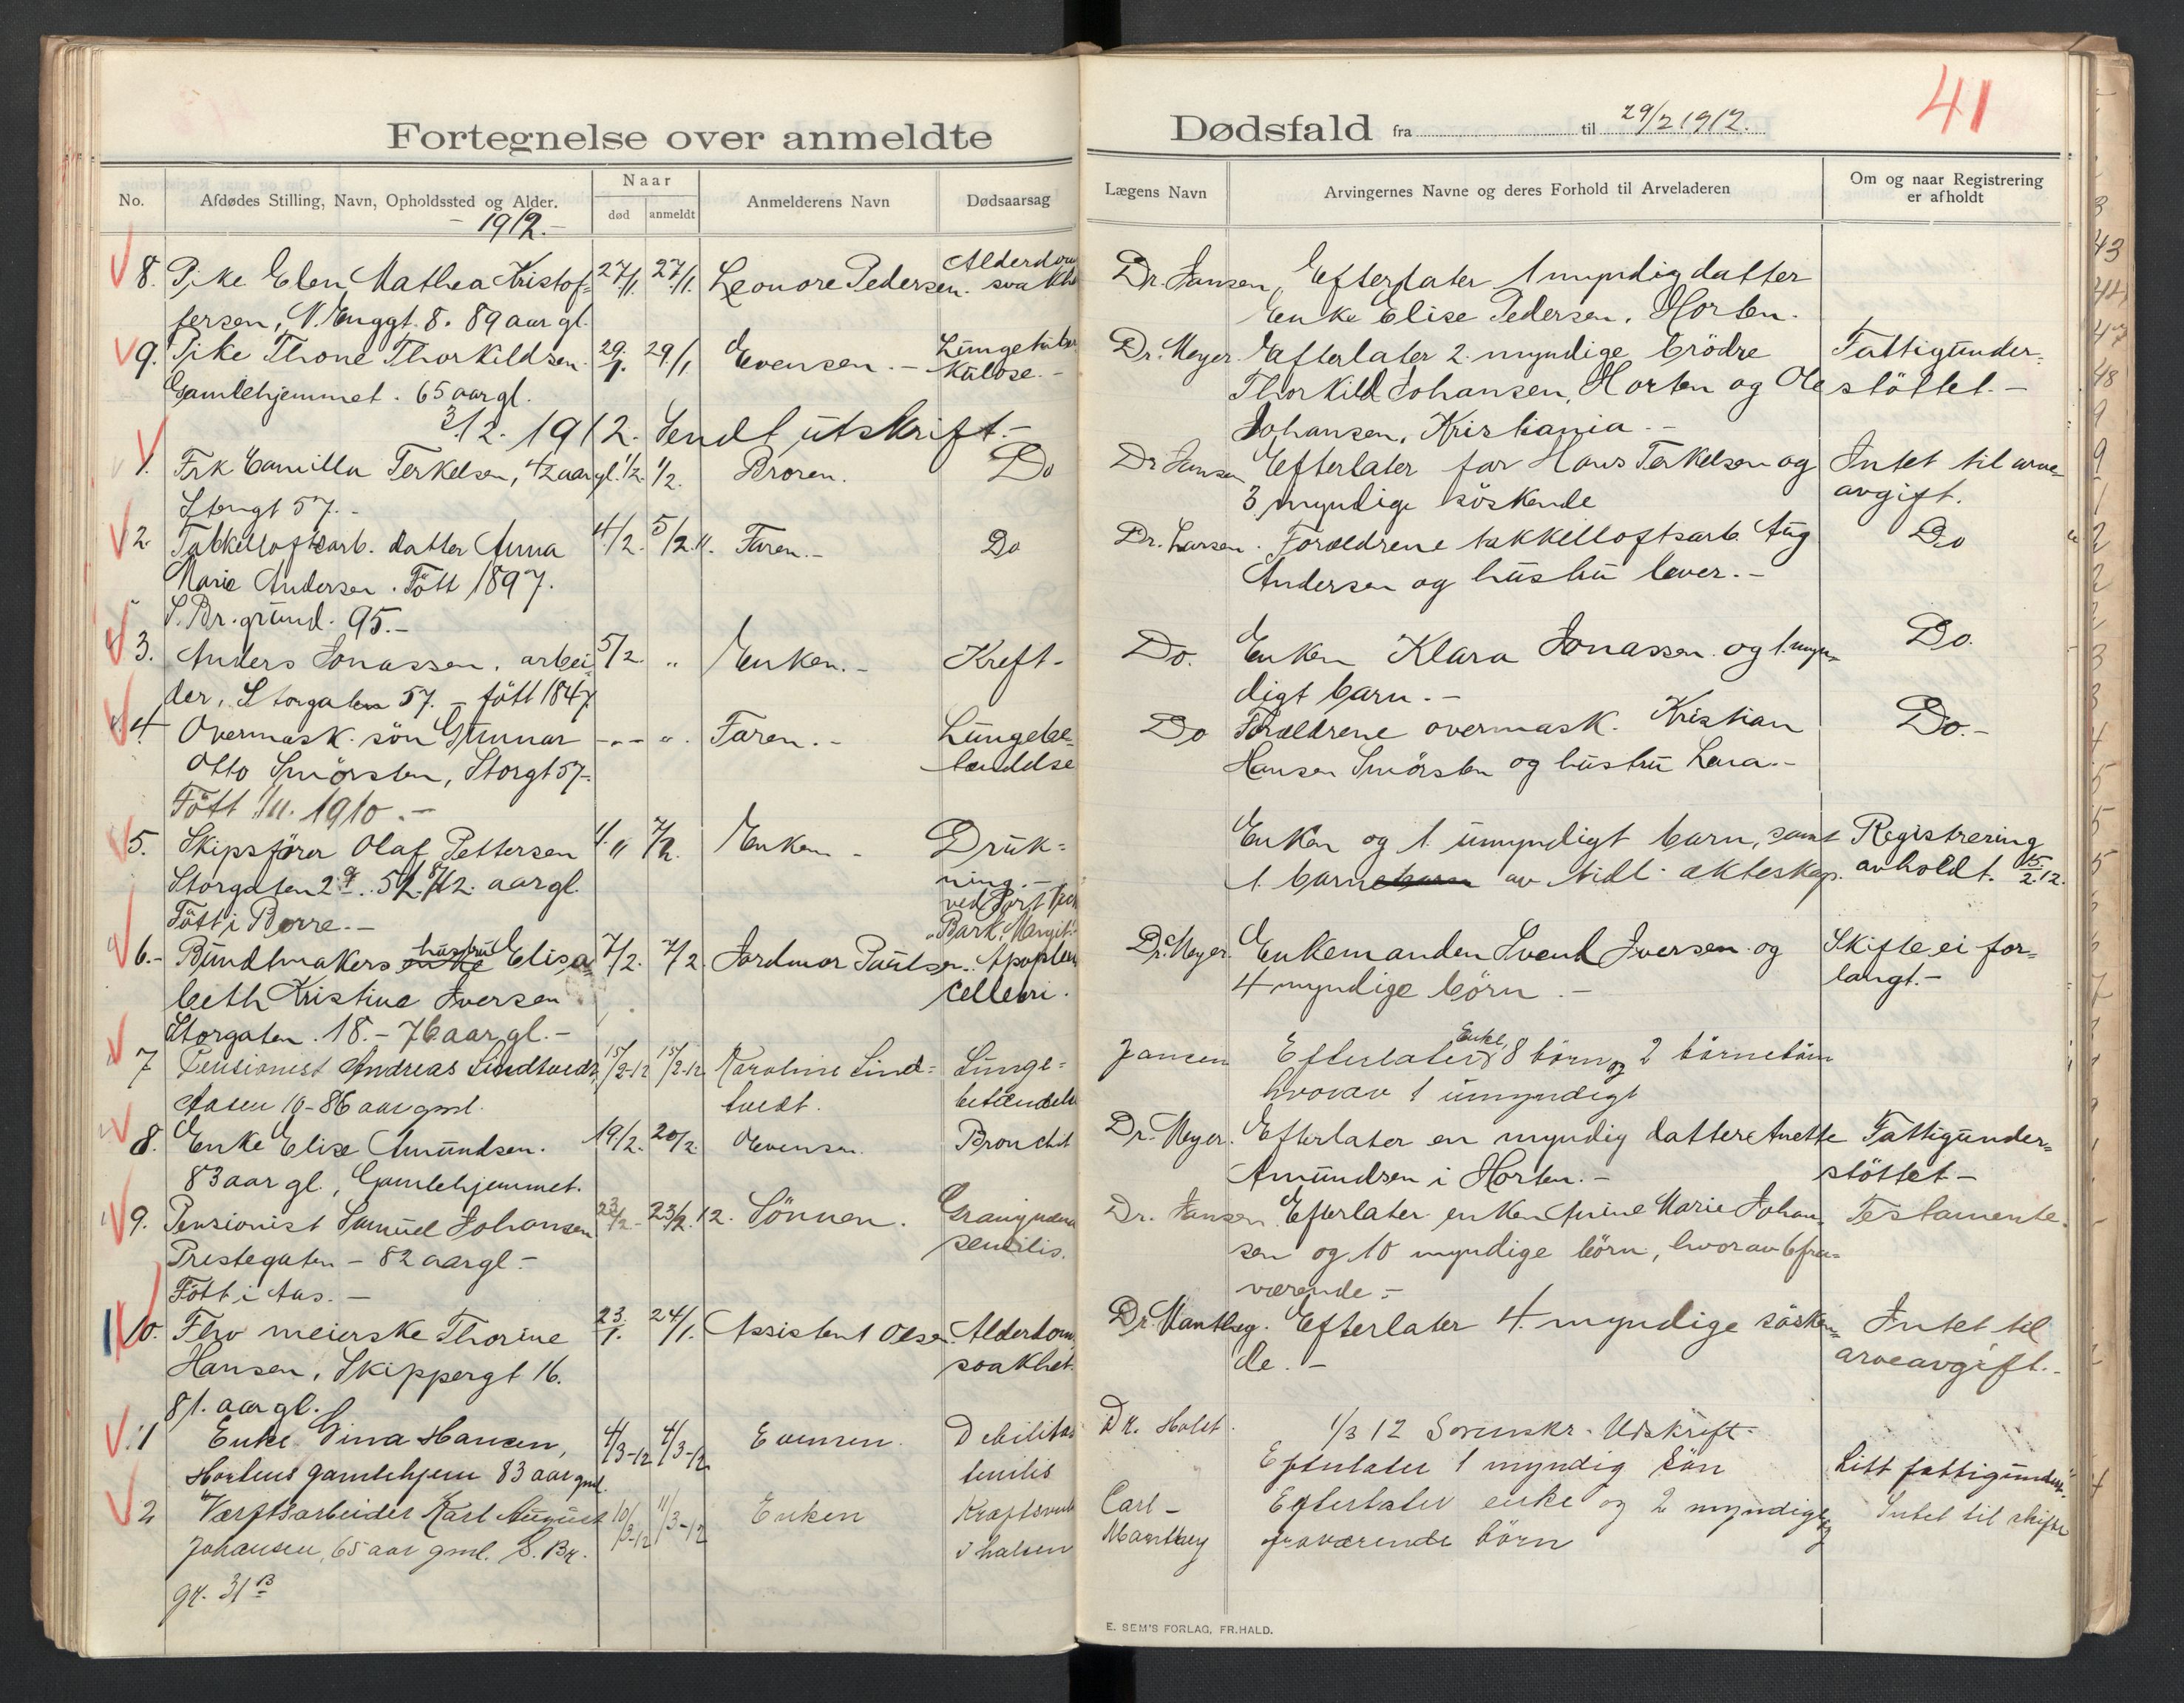 Fortegnelse over anmeldte
No.
Afdødes Stilling, Navn, Opholdssted og Alder.
Naar
død
anmeldt
Anmelderens Navn
Dødsaarsag
1912.-
8. Pike Elen Mathea Kristof= 27/1. 27/1. Leonore Pedersen. Alderdom
fersen, N. Enggt. 8. 89 aar gl.
9. Pike Thone Thorkildsen. 29/1. 29/1 Evensen.- Lungetuber
Gamlehjemmet. 65 aar gl. kulose.-
3/2. 1912. Sendt utskrift.-
1. Frk Camilla Terkelsen, 42 aar gl. 1/2. 1/2. Broren. Do
Storgt 57.-
2. Takkelloftsarb. datter Anna 4/2. 5/2. Faren.- Do
Marie Andersen. Født 1897.
S. Br. grund. 95.-
3. Anders Jonassen, arbei= 5/2. " Enken.- Kreft-
der, Storgaten 57.- født 1847.
4. Overmask. søn Gunnar -"- ". Faren.- Lungebe=
Otto Smørsten, Storgt 57- tændelse
Født 1/11. 1910.-
5. Skipsfører Olaf Pettersen 4/" 7/2. Enken- Druk=
Storgaten 2 52 aar gl. ning.-
Født i Borre.- ved Port
"Bark. Margit"
6.- Bundtmakers enke hustru Elisa= 7/2. 7/2. Jordmor Paulsen. Apoplexi
beth Kristine Iversen celebri.
Storgaten. 18.- 76 aar gl.-
7 Pensionist Andreas Lindtvedt, 15/2-12 15/2-12 Karoline Lind= Lunge=
Aasen 19-86 aar gml. tvedt. betændelse
8. Enke Elise Amundsen. 19/2. 20/2 Evensen. Bronchit
83 aar gl., Gamlehjemmet.
9. Pensionist Samuel Johansen 23/2- 23/2.12. Sønnen.
Prestegaten - 82 aar gl.- senilis.
Født i Aas.-
10. Fhv meierske Thorine 23/1. 24/1. Assistent Olsen Alderdom
Hansen, Skippergt 16. svakhet.
81. aar gl.
11 Enke Gina Hansen, 4/3-12 4/3-12 Evensen. Debilitas
Hortens gamlehjem 83 aar gml. senilis
2 Værftsarbeider Karl August 10/3-12 11/3-12 Enken Kræftsvulst
Johansen, 65 aar gml. S. Br. i halsen
gr. 31 B
Dødsfald fra til 29/2 1912.
41
Lægens Navn
Arvingernes Navne og deres Forhold til Arveladeren
Om og naar Registrering
er afholdt
Dr. Jansen, Efterlater 1 myndig datter
Enke Elise Pedersen, Horten.
Dr. Meyer. Efterlater 2 myndige brødre Fattigunder=
Thorkild Johansen, Horten og Ole støttet.-
Johansen, Kristiania.-
Dr Jansen Efterlater far Hans Terkelsen og Intet til arve=
3 myndige søskende avgift.
Dr. Larsen. Forældrene takkelloftsarb. Aug Do
Andersen og hustru lever.-
Do. Enken Klara Jonassen og 1. myn= Do.
digt barn.-
Do Forældrene overmask. Kristian Do.-
Hansen Smørsten og hustru Lena.-
Enken og 1. umyndigt barn, samt Registrering
1. barnebarn av tidl. ekteskap. avholdt. 15/2.12.
Dr. Meyer. Enkemanden Svend Iversen og Skifte ei for=
4 myndige børn.- langt.-
Jansen Efterlater Enke, 8 børn og 2 børnebørn
hvorav 1 umyndigt
Dr. Meyer. Efterlater en myndig datter Anette Fattigunder=
Amundsen i Horten.- støttet-
Dr. Jansen. Efterlater enken Anine Marie Johan= Testamente.
sen og 10 myndige børn, hvorav 6 fra=
værende.-
Dr. Manthey. Efterlater 4. myndige søsken= Intet til
de.- arveavgift.-
Dr. Holst. 1/3 12 Sorenskr. Utskrift-
Efterlater 1 myndig søn Litt fattigunderst.
Carl- Efterlater enke og 2 myndige og Intet til skifte
Manthey fraværende børn
E. SEM'S FORLAG, FR.HALD.